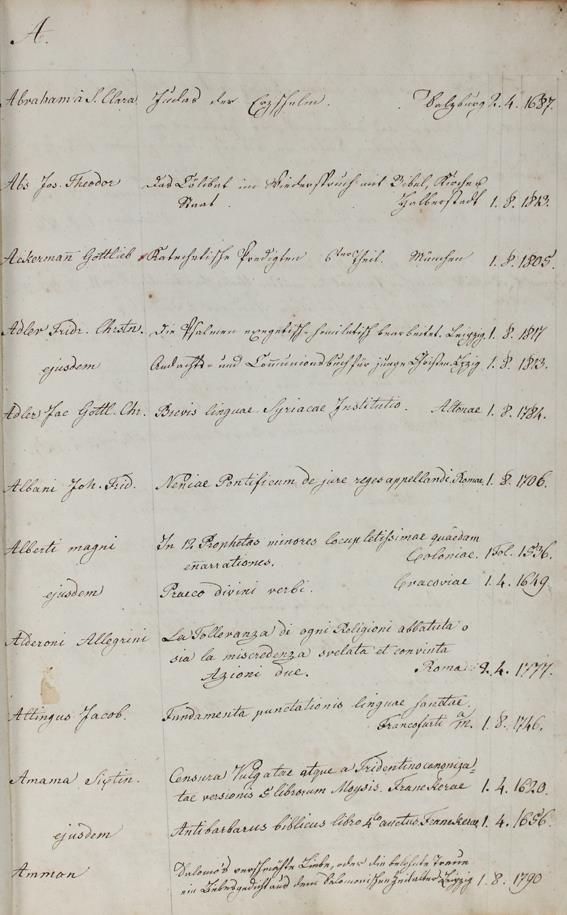 A.
Abraham à S. Clara Judas der Erzschelm. Salzburg 2. 4. 1687.
Abs Jos. Theodor Das Cölibat im Widerspruch mit Bibel, Kirche u
Staat. Halberstadt 1. 8. 1813.
Ackermañ Gottlieb Katechetische Predigten Theil. München 1. 8. 1805.
Adler Fridr. Chrstn. Die Psalmen exegetisch-homiletisch bearbeitet. Leipzig. 1. 8. 1817
ejusdem Andachts- und Com̃unionsbuch für junge Christen. Lpzig. 1. 8. 1813.
Adler Jac Gottl. Chr. Brevis linguae Syriacae Institutio. Altonae 1. 8. 1784.
Albani Joh. Frid. Pontificum de jure reges appellandi. Romae. 1. 8. 1706.
Alberti magni In 12 Prophetas minores locupletissimae quaedam
eñarrationes. Coloniae. 1 Fol. 1536.
ejusdem Praeco divini verbi. Cracoviae 1. 4. 1649.
Alderoni Allegrini La Tolleranza di ogni Religioni abbatuta o
sia la miscredenza svelata et convinta
Azioni due. Roma 2. 4. 1777.
Altingus Jacob. Fundamenta punctationis linguae sanctae.
Francofurti a m. 1. 8. 1746.
Amama Sixtin. Censura Vulgatae atque a Tridentino canoniza-
tae versionis 5 librorum Moysis. Franekerae 1. 4. 1620.
ejusdem Antibarbarus biblicus libro 4to auctus. Franekerae 1. 4. 1656.
Ammon Salomo's verschmähte Liebe, oder die belohnte Treue
ein Liebesgedicht aus dem Salomonischen Zeitalter. Leipzig 1. 8. 1790